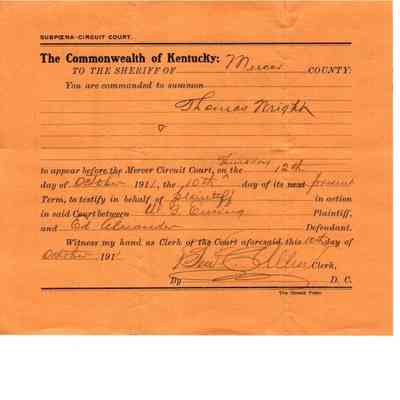 SUBPŒNA-CIRCUIT COURT.
The Commonwealth of Kentucky:
TO THE SHERIFF OF Mercer COUNTY:
You are commanded to summon
Thomas Wright
to appear before the Mercer Circuit Court, on the Thursday 12th
day of October 1911, the 10th day of its next present
Term, to testify in behalf of Plaintiff in action
in said Court between W G Plaintiff,
and Ed Defendant.
Witness my hand as Clerk of the Court aforesaid, this 10th day of
October 1911
Ben C Allen Clerk,
By D. C.